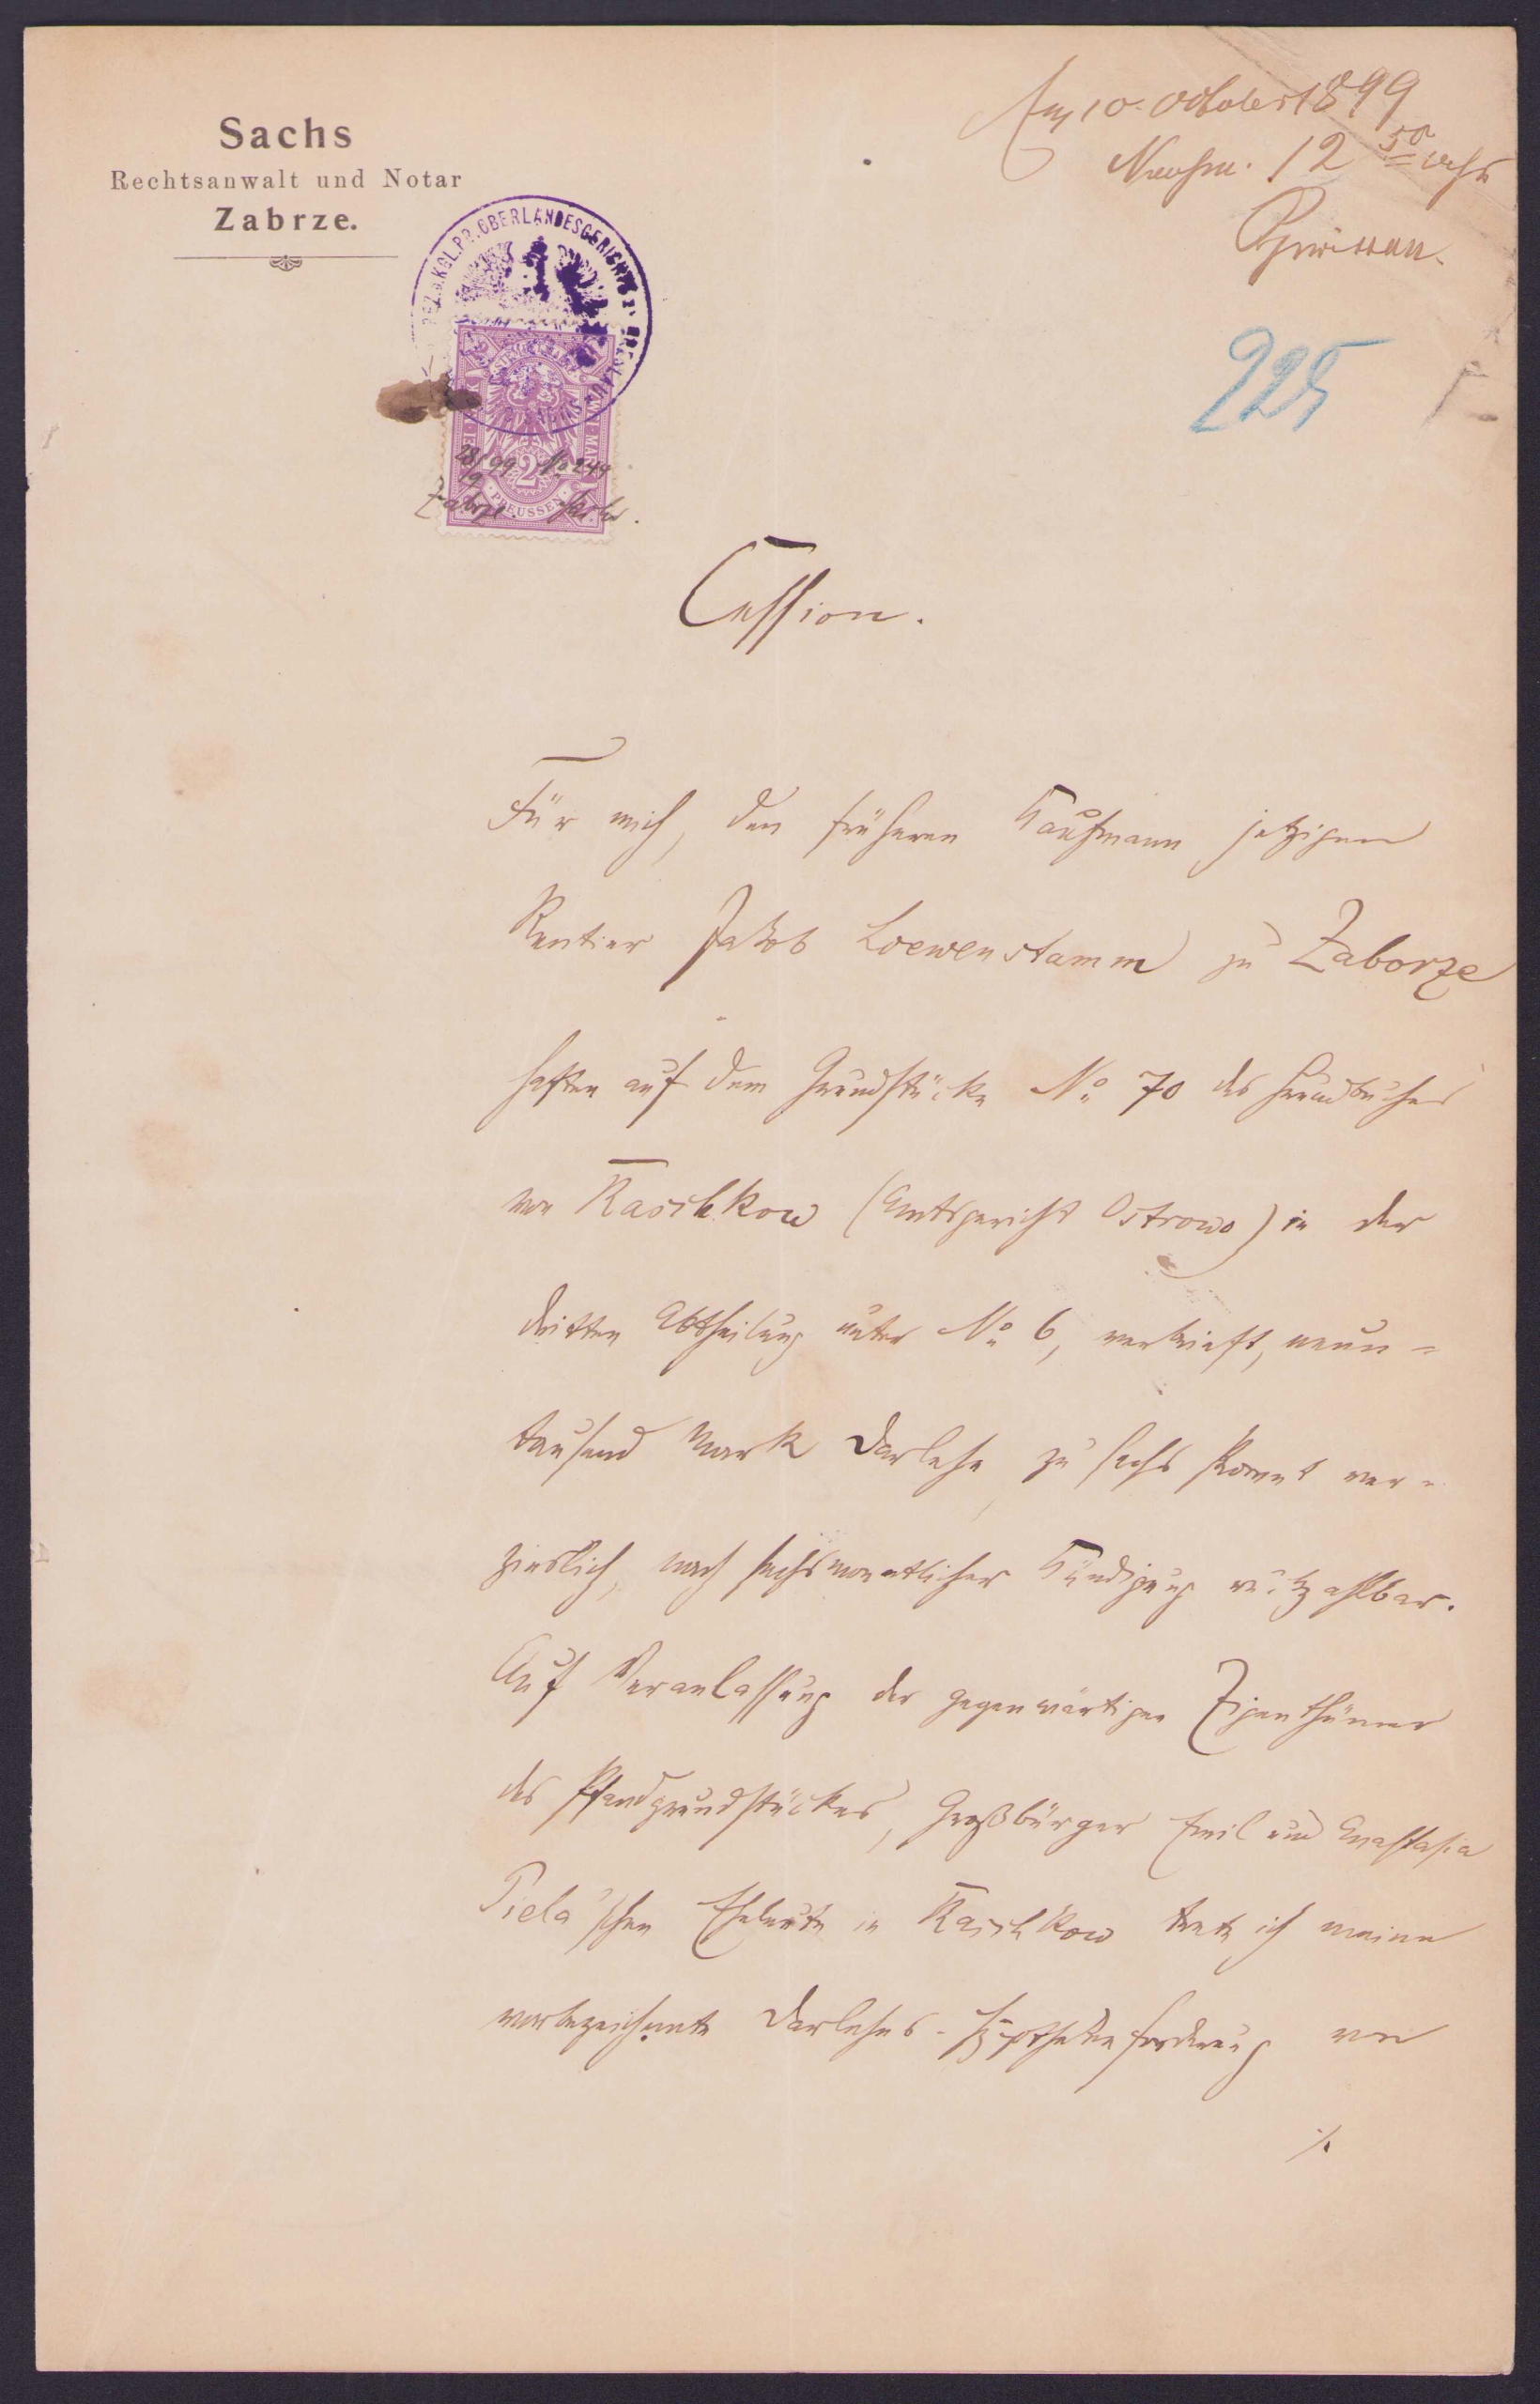 Sachs
Rechtsanwalt und Notar
Zabrze.
Am 10. October 1899
Nachm. 12 50 Uhr
225
BEZ. D. KGL. PR. OBERLANDESGERICHTS Z. BRESLAU
ZWEI MARK
2
PREUSSEN
28/9 99 No 244
Zabrze. Sachs.
Cession.
Für mich, den früheren Kaufmann jetzigen
Rentier Jakob Loewenstamm zu Zaborze
haften auf dem Grundstücke No 70 des Grundbuches
von Raschkow (Amtsgericht Ostrowo) in der
dritten Abtheilung unter No 6, verbrieft, neun-
tausend Mark Darlehn, zu sechs Procent ver-
zinslich, nach sechsmonatlicher Kündigung rückzahlbar.
Auf Veranlassung der gegenwärtigen Eigenthümer
des Pfandgrundstückes, Großbürger Emil und Anastasia
Piela'schen Eheleute in Raschkow trete ich meine
vorbezeichnete Darlehns-Hypothekenforderung von
./.